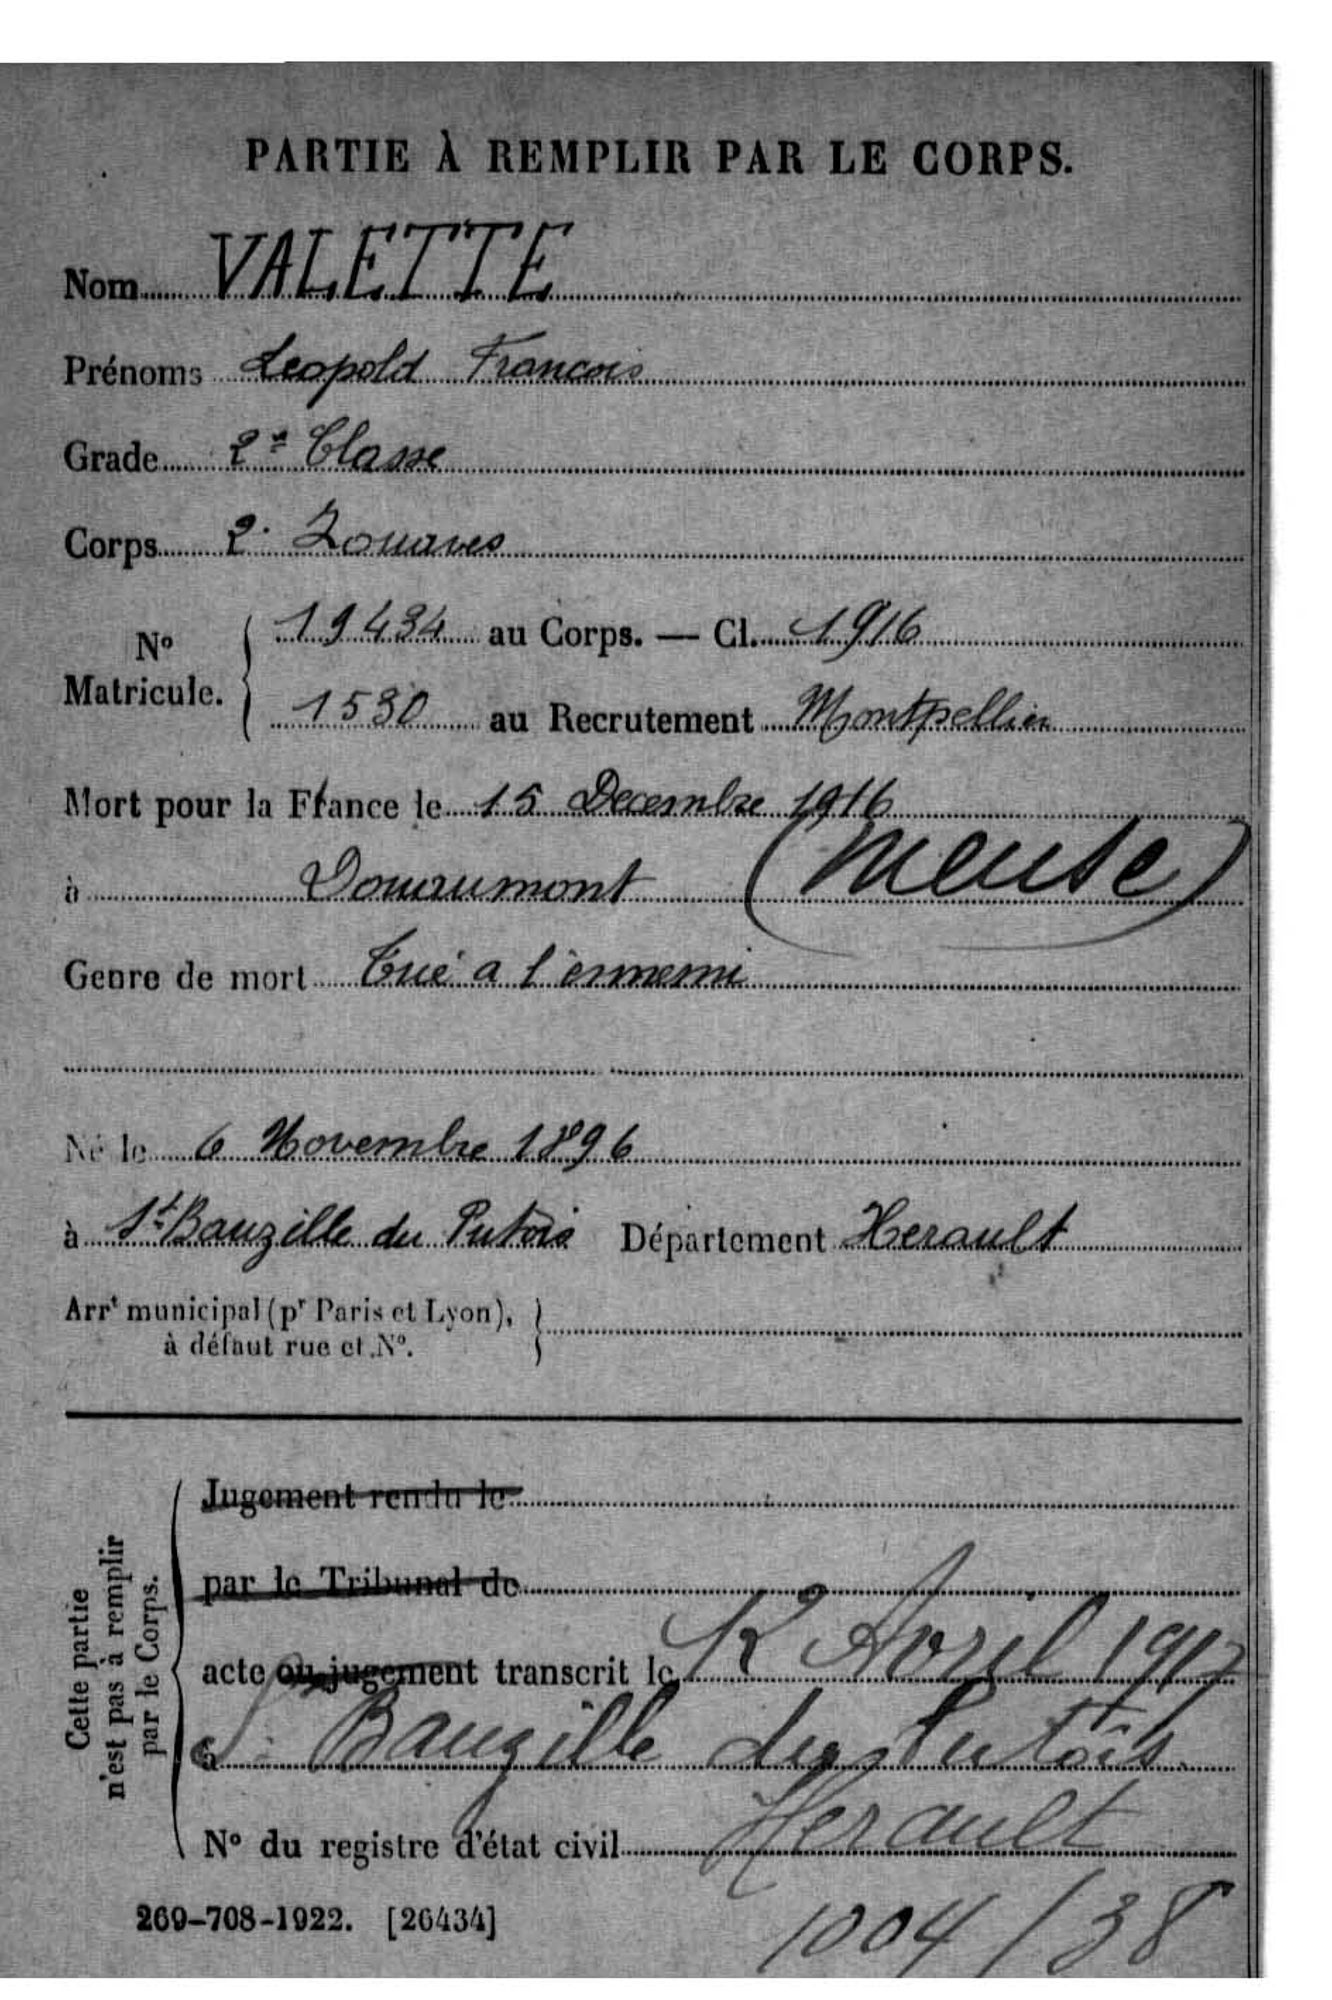 PARTIE À REMPLIR PAR LE CORPS.
Nom VALETTE
Prénoms Leopold Francois
Grade 2e Classe
Corps 2e Zouaves
No Matricule. 19434 au Corps. — Cl. 1916
1530 au Recrutement Montpellier
Mort pour la France le 15 Decembre 1916
à Douaumont (Meuse)
Genre de mort Tué a l'ennemi
Né le 6 Novembre 1896
à St Bauzille du Putois Département Herault
Arrt municipal (pr Paris et Lyon),
à défaut rue et No.
Cette partie
n'est pas à remplir
par le Corps.
Jugement rendu le
par le Tribunal de
acte ou jugement transcrit le 12 Avril 1917
à St Bauzille du Putois
Hérault
No du registre d'état civil
269-708-1922. [26434]
1004/38